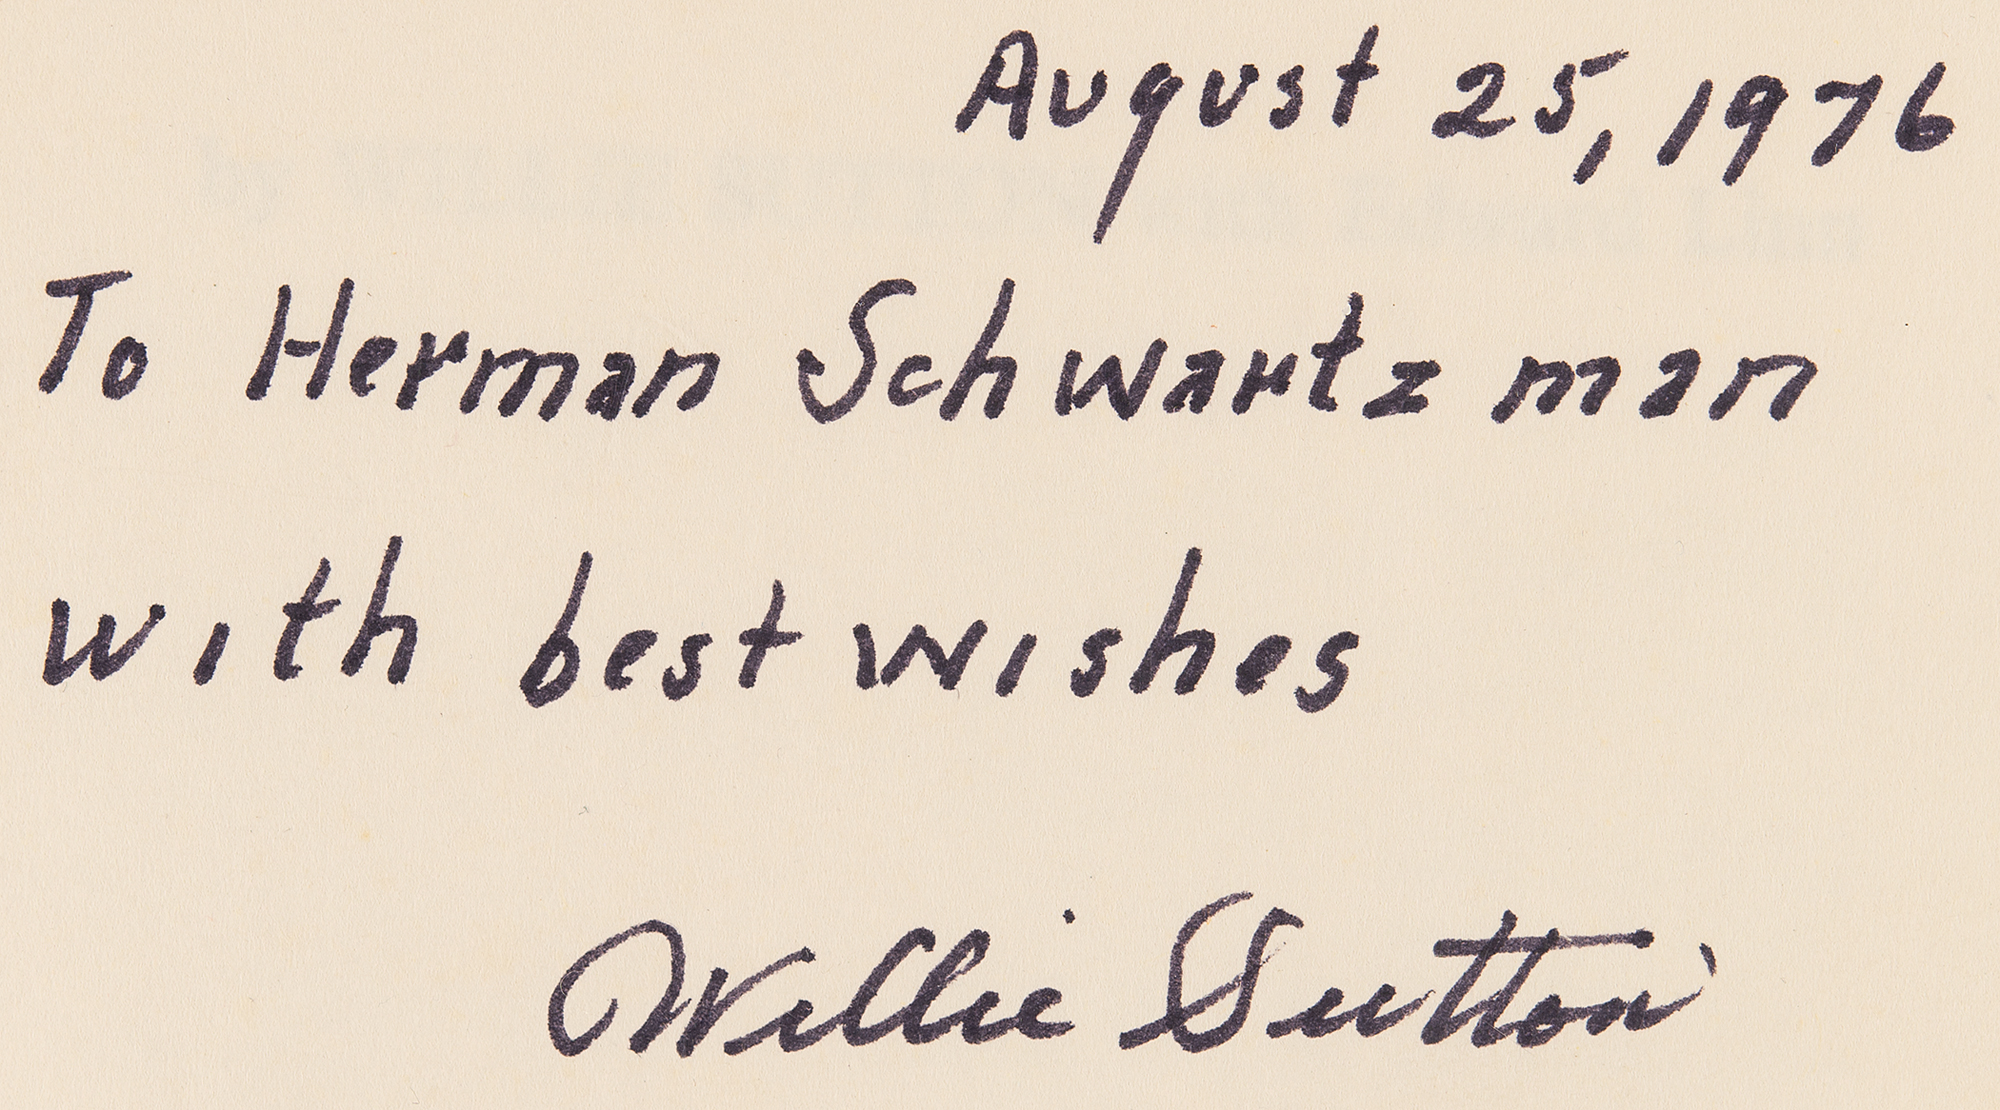 August 25, 1976
To Herman Schwartzman
with best wishes
Willie Sutton